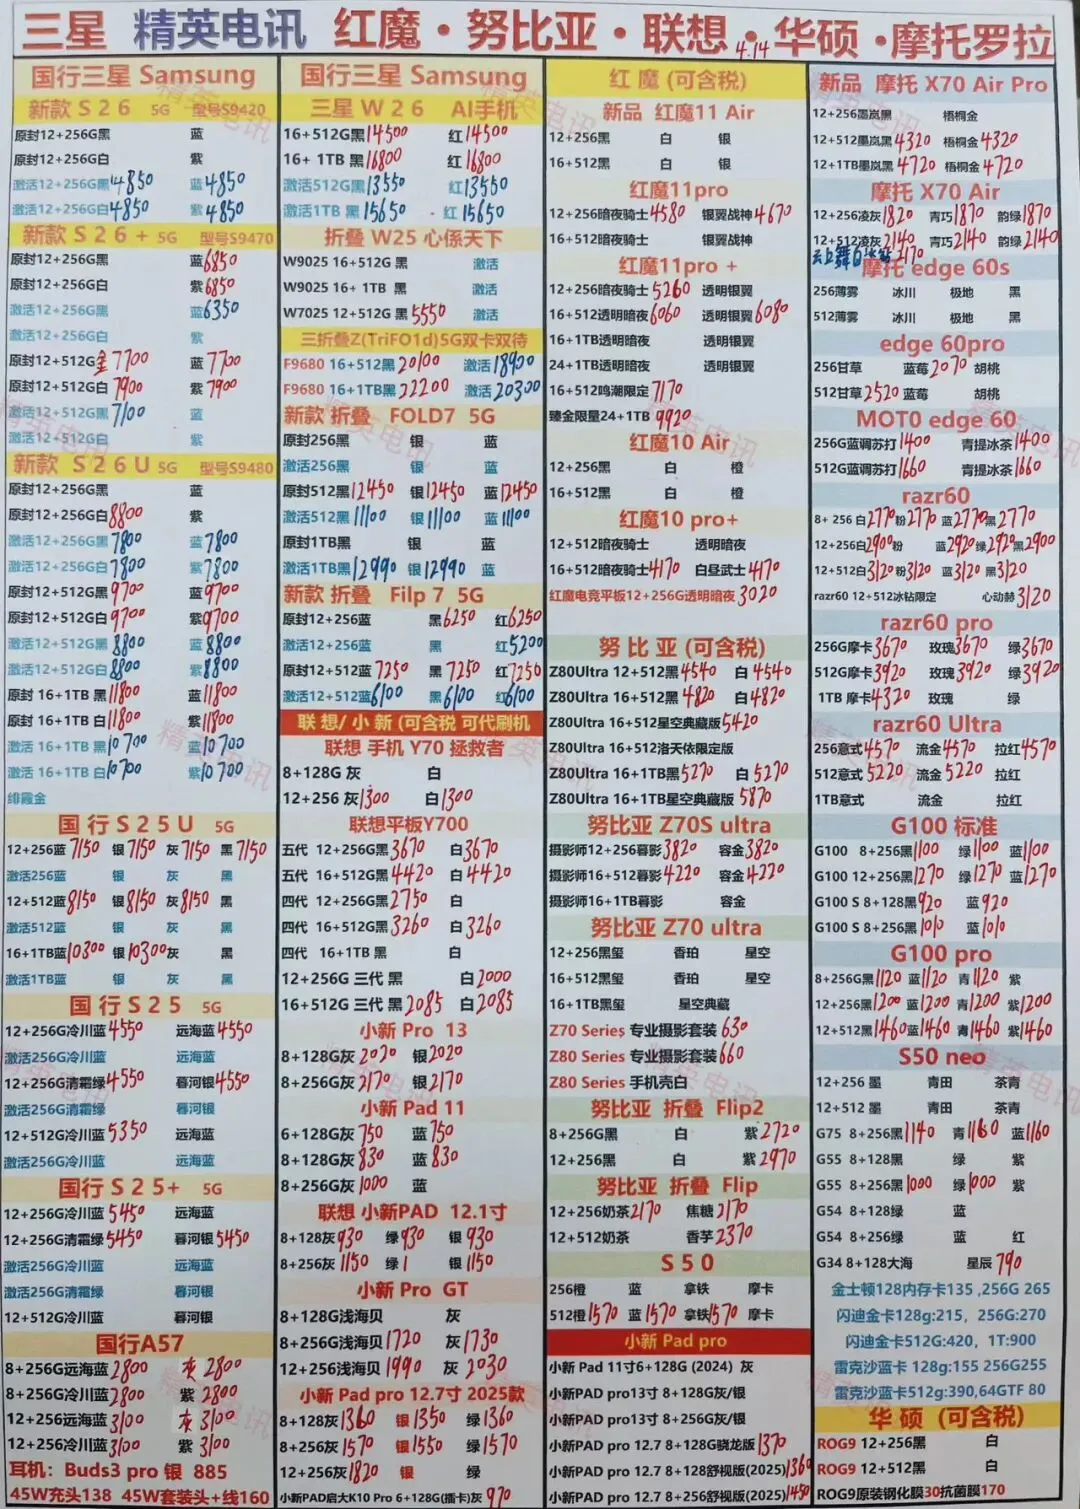 三星 精英电讯 红魔·努比亚·联想·华硕·摩托罗拉
4.14
国行三星 Samsung
新款 S 2 6 5G 型号S9420
原封12+256G黑 蓝
原封12+256G白 紫
激活12+256G黑4850 蓝4850
激活12+256G白4850 紫4850
新款 S 2 6 + 5G 型号S9470
原封12+256G黑 蓝6850
原封12+256G白 紫6850
激活12+256G黑 蓝6350
激活12+256G白 紫
原封12+512G金7700 蓝7700
原封12+512G白7900 紫7900
激活12+512G黑7100 蓝
激活12+512G白 紫
新款 S 2 6 U 5G 型号S9480
原封12+256G黑 蓝
原封12+256G白8800 紫
激活12+256G黑7800 蓝7800
激活12+256G白7800 紫7800
原封12+512G黑9700 蓝9700
原封12+512G白9700 紫9700
激活12+512G黑8800 蓝8800
激活12+512G白8800 紫8800
原封 16+1TB 黑11800 蓝11800
原封 16+1TB 白11800 紫11800
激活 16+1TB 黑10700 蓝10700
激活 16+1TB 白10700 紫10700
绯霞金
国 行 S 2 5 U 5G
12+256蓝7150 银7150 灰7150 黑7150
激活256蓝 银 灰 黑
12+512蓝8150 银8150 灰8150 黑
激活512蓝 银 灰 黑
16+1TB蓝10300 银10300灰 黑
激活1TB蓝 银 灰 黑
国 行 S 2 5 5G
12+256G冷川蓝4550 远海蓝4550
激活256G冷川蓝 远海蓝
12+256G清霜绿4550 暮河银4550
激活256G清霜绿 暮河银
12+512G冷川蓝5350 远海蓝
激活256G冷川蓝 远海蓝
国行 S 2 5 + 5G
12+256G冷川蓝5450 远海蓝
12+256G清霜绿5450 暮河银5450
激活256G冷川蓝 远海蓝
激活256G清霜绿 暮河银
12+512G冷川蓝 远海蓝
国行A57
8+256G远海蓝2800 灰 2800
8+256G冷川蓝2800 紫 2800
12+256远海蓝3100 灰 3100
12+256冷川蓝3100 紫 3100
耳机：Buds3 pro 银 885
45W充头138 45W套装头+线160
国行三星 Samsung
三星 W 2 6 AI手机
16+512G黑14500 红14500
16+ 1TB 黑16800 红16800
激活512G黑13550 红13550
激活1TB 黑15650 红15650
折叠 W25 心係天下
W9025 16+512G 黑 激活
W9025 16+ 1TB 黑 激活
W7025 12+512G 黑5550 激活
三折叠Z(TriFO1d)5G双卡双待
F9680 16+512黑20100 激活18900
F9680 16+1TB黑22200 激活20300
新款 折叠 FOLD7 5G
原封256黑 银 蓝
激活256黑 银 蓝
原封512黑12450 银12450 蓝12450
激活512黑11100 银11100 蓝11100
原封1TB黑 银 蓝
激活1TB黑12990 银12990 蓝
新款 折叠 Filp 7 5G
原封12+256蓝 黑6250 红6250
激活12+256蓝 黑 红5200
原封12+512蓝7250 黑7250 红7250
激活12+512蓝6100 黑6100 红6100
联 想/ 小 新 (可含税 可代刷机
联想 手机 Y70 拯救者
8+128G 灰 白
12+256 灰1300 白1300
联想平板Y700
五代 12+256G黑3670 白3670
五代 16+512G黑4420 白4420
四代 12+256G黑2750 白
四代 16+512G黑3260 白3260
四代 16+1TB 黑 白
12+256G 三代 黑 白2000
16+512G 三代 黑2085 白2085
小新 Pro 13
8+128G灰2020 银2020
8+256G灰2170 银2170
小新 Pad 11
6+128G灰750 蓝750
8+128G灰830 蓝830
8+256G灰1000 蓝
联想 小新PAD 12.1寸
8+128灰930 绿930 银930
8+256灰1150 绿1 银1150
小新 Pro GT
8+128G浅海贝 灰
8+256G浅海贝1720 灰1730
12+256浅海贝1990 灰2030
小新 Pad pro 12.7寸 2025款
8+128灰1360 银1350 绿1360
8+256灰1570 银1550 绿1570
12+256灰1820 银 绿
小新PAD启大K10 Pro 6+128G(插卡)灰970
红 魔 (可含税)
新品 红魔11 Air
12+256黑 白 银
16+512黑 白 银
红魔11pro
12+256暗夜骑士4580 银翼战神4670
16+512暗夜骑士 银翼战神
红魔11pro +
12+256暗夜骑士5260 透明银翼
16+512透明暗夜6060 透明银翼6080
16+1TB透明暗夜 透明银翼
24+1TB透明暗夜 透明银翼
16+512鸣潮限定7170
臻金限量24+1TB 9920
红魔10 Air
12+256黑 白 橙
16+512黑 白 橙
红魔10 pro+
12+512暗夜骑士 透明暗夜
16+512暗夜骑士4170 白昼武士4170
红魔电竞平板12+256G透明暗夜3020
努 比 亚 (可含税)
Z80Ultra 12+512黑4540 白4540
Z80Ultra 16+512黑4820 白4820
Z80Ultra 16+512星空典藏版5420
Z80Ultra 16+512洛天依限定版
Z80Ultra 16+1TB黑5270 白5270
Z80Ultra 16+1TB星空典藏版5870
努比亚 Z70S ultra
摄影师12+256暮影3820 容金3820
摄影师16+512暮影4220 容金4220
摄影师16+1TB暮影 容金
努比亚 Z70 ultra
12+256黑玺 香珀 星空
16+512黑玺 香珀 星空
16+1TB黑玺 星空典藏
Z70 Series 专业摄影套装630
Z80 Series 专业摄影套装660
Z80 Series 手机壳白
努比亚 折叠 Flip2
8+256G黑 白 紫2720
12+256黑 白 紫2970
努比亚 折叠 Flip
12+256奶茶2170 焦糖2170
12+512奶茶 香芋2370
S 5 0
256橙 蓝 拿铁 摩卡
512橙1570 蓝1570 拿铁1570 摩卡
小新 Pad pro
小新 Pad 11寸6+128G (2024) 灰
小新PAD pro13寸 8+128G灰/银
小新PAD pro13寸 8+256G灰/银
小新PAD pro 12.7 8+128G骁龙版1370
小新PAD pro 12.7 8+128舒视版(2025)1360
小新PAD pro 12.7 8+256舒视版(2025)1450
新品 摩托 X70 Air Pro
12+256墨岚黑 梧桐金
12+512墨岚黑4320 梧桐金4320
12+1TB墨岚黑4720 梧桐金4720
摩托 X70 Air
12+256凌灰1820 青巧1870 韵绿1870
12+512凌灰2140 青巧2140 韵绿2140
云上舞白冰钻2170
摩托 edge 60s
256薄雾 冰川 极地 黑
512薄雾 冰川 极地 黑
edge 60pro
256甘草 蓝莓2070 胡桃
512甘草2520 蓝莓 胡桃
MOT0 edge 60
256G蓝调苏打1400 青提冰茶1400
512G蓝调苏打1660 青提冰茶1660
razr60
8+ 256 白2770粉2770 蓝2770黑2770
12+256白2900粉 蓝2920绿2920黑2900
12+512白3120粉3120 蓝3120 黑3120
razr60 12+512冰钻限定 心动赫3120
razr60 pro
256G摩卡3670 玫瑰3670 绿3670
512G摩卡3920 玫瑰3920 绿3920
1TB 摩卡4320 玫瑰 绿
razr60 Ultra
256意式4570 流金4570 拉红4570
512意式5220 流金5220 拉红
1TB意式 流金 拉红
G100 标准
G100 8+256黑1100 绿1100 蓝1100
G100 12+256黑1270 绿1270 蓝1270
G100 S 8+128黑920 蓝920
G100 S 8+256黑1010 蓝1010
G100 pro
8+256G黑1120 蓝1120 青1120 紫
12+256黑1200 蓝1200 青1200 紫1200
12+512黑1460蓝1460 青1460 紫1460
S50 neo
12+256 墨 青田 茶青
12+512 墨 青田 茶青
G75 8+256黑1140 青1160 蓝1160
G55 8+128黑 绿 紫
G55 8+256黑1000 绿1000 紫
G54 8+128绿 蓝
G54 8+256绿 蓝 红
G34 8+128大海 星辰790
金士顿128内存卡135 ,256G 265
闪迪金卡128g:215, 256G:270
闪迪金卡512G:420, 1T:900
雷克沙蓝卡 128g:155 256G255
雷克沙蓝卡512g:390,64GTF 80
华 硕 (可含税)
ROG9 12+256黑 白
ROG9 12+512黑 白
ROG9原装钢化膜30抗菌膜170